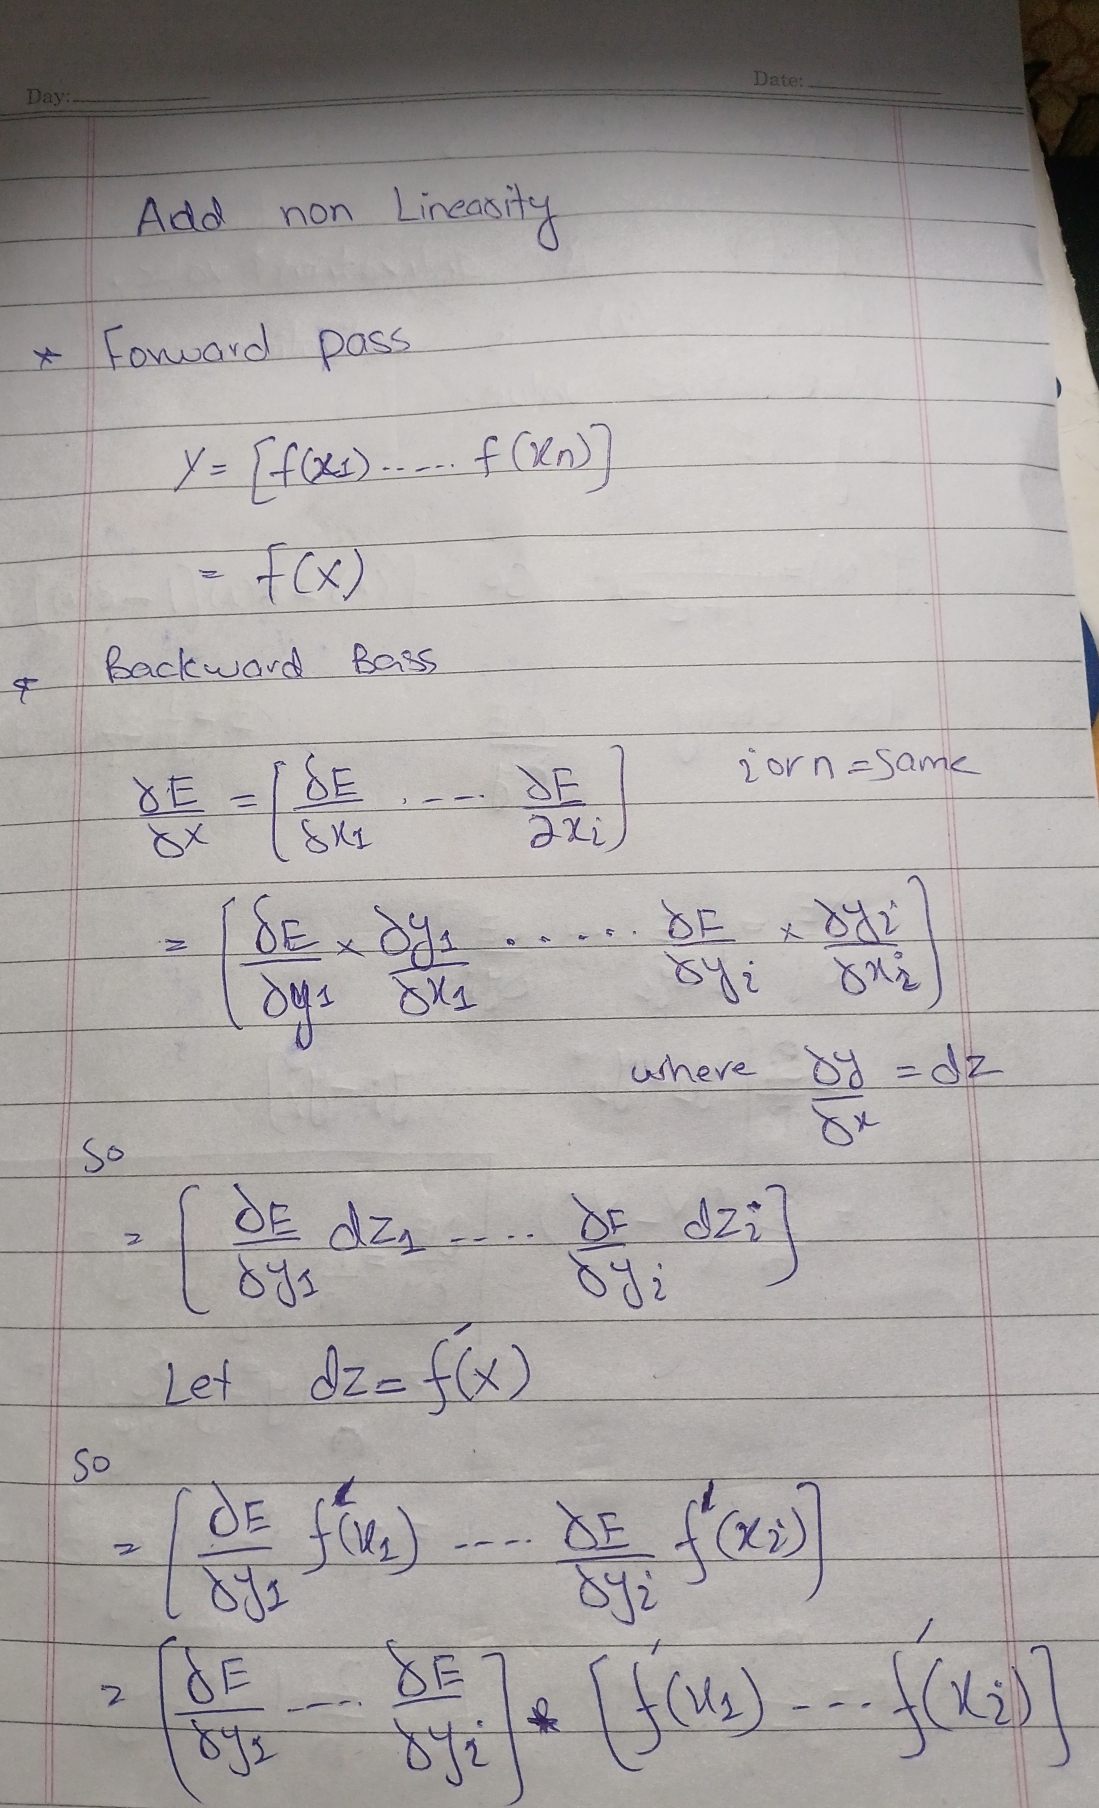 Day:
Date:
Add non Linearity
* Forward pass
Y = [f(x1) ...... f(xn)]
= f(x)
* Backward Bass
∂E/∂x = [∂E/∂x1 . --- ∂E/∂xi] i or n = same
= [∂E/∂y1 × ∂y1/∂x1 ...... ∂E/∂yi × ∂yi/∂xi]
where ∂y/∂x = dz
So
= [∂E/∂y1 dz1 ---.. ∂E/∂yi dzi]
Let dz = f'(x)
So
= [∂E/∂y1 f'(x1) ---- ∂E/∂yi f'(xi)]
= [∂E/∂y1 ---- ∂E/∂yi] * [f'(x1) ---- f'(xi)]